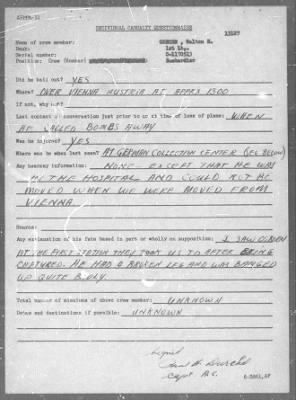 INDIVIDUAL CASUALTY QUESTIONNAIRE
Name of crew member: Walton H.
Rank: 1st Lt.,
Serial number:
Position: Crew (Bombardier
Did he bail out? YES
Where? OVER VIENNA AUSTRIA AT APPRX 1300
If not, why not?
Last contact or conversation just prior to or at time of loss of plane: WHEN
HE CALLED BOMBS AWAY
Was he injured? YES
Where was he when last seen? AT GERMAN COLLECTION CENTER (SEE BELOW)
Any hearsay information: NONE EXCEPT THAT HE WAS
IN THE HOSPITAL AND COULD NOT BE
MOVED WHEN WE WERE MOVED FROM
VIENNA.
Source:
Any explanation of his fate based in part or wholly on supposition: I SAW
AT THE FIRST STATION THEY TOOK US TO AFTER BEING
CAPTURED. HE HAD A BROKEN LEG AND WAS BANGED
UP QUITE BADLY.
Total number of missions of above crew member: UNKNOWN
Dates and destinations if possible: UNKNOWN
signed
Capt A.C.